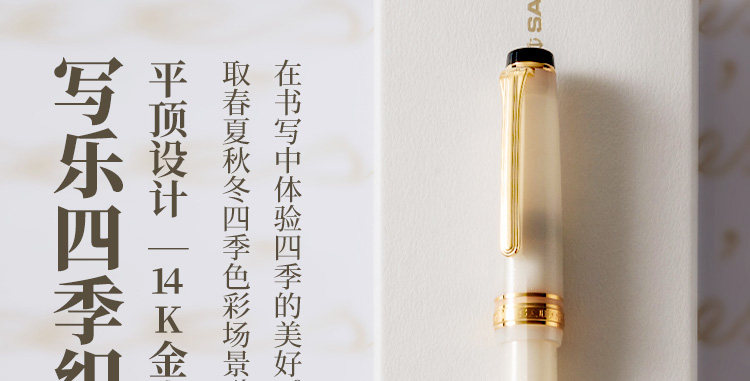 SA
在书写中体验四季的美好
取春夏秋冬四季色彩场景
平顶设计 — 14K金
写乐四季